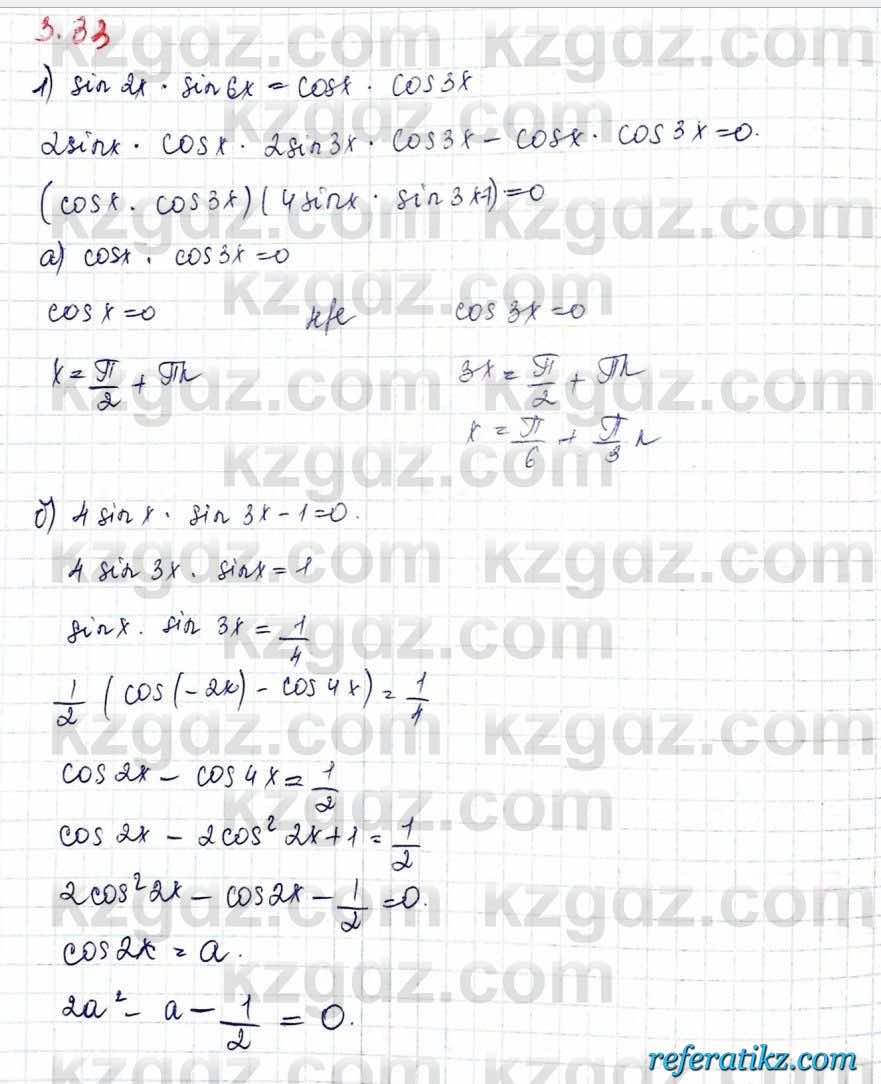 3.33
1) sin 2x · sin 6x = cosx · cos 3x
2sinx · cosx · 2sin3x · cos3x - cosx · cos3x=0.
(cosx · cos3x)(4sinx · sin3x-1)=0
а) cosx · cos3x=0
cosx=0 cos 3x=0
x = π/2 + πn 3x = π/2 + πn
x = π/6 + π/3 n
б) 4 sinx · sin 3x - 1=0.
4 sin 3x · sinx = 1
sinx · sin 3x = 1/4
1/2 (cos(-2x) - cos 4x) = 1/4
cos 2x - cos 4x = 1/2
cos 2x - 2cos² 2x + 1 = 1/2
2cos² 2x - cos 2x - 1/2 = 0.
cos 2x = a.
2a² - a - 1/2 = 0.
kzgdz.com
referatikz.com